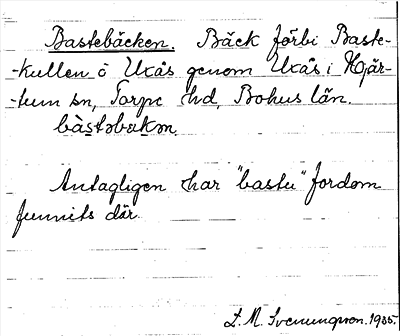 Bastebäcken. Bäck förbi Baste-
-kullen ö Uxås genom Uxås i Hjär-
-tum sn, Torpe hd, Bohus län.
bàstəbakən.
Antagligen har "bastu" fordom
funnits där.
L. M. Svenungsson. 1935.